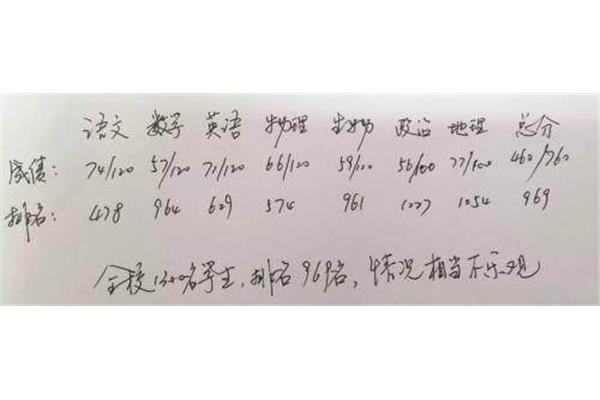 语文 数学 英语 物理 生物 政治 地理 总分
成绩: 74/120 57/120 71/120 66/120 59/100 56/100 77/100 460/760
排名: 478 964 609 574 961 1227 1054 969
全校1300名学生,排名969名,情况相当不乐观